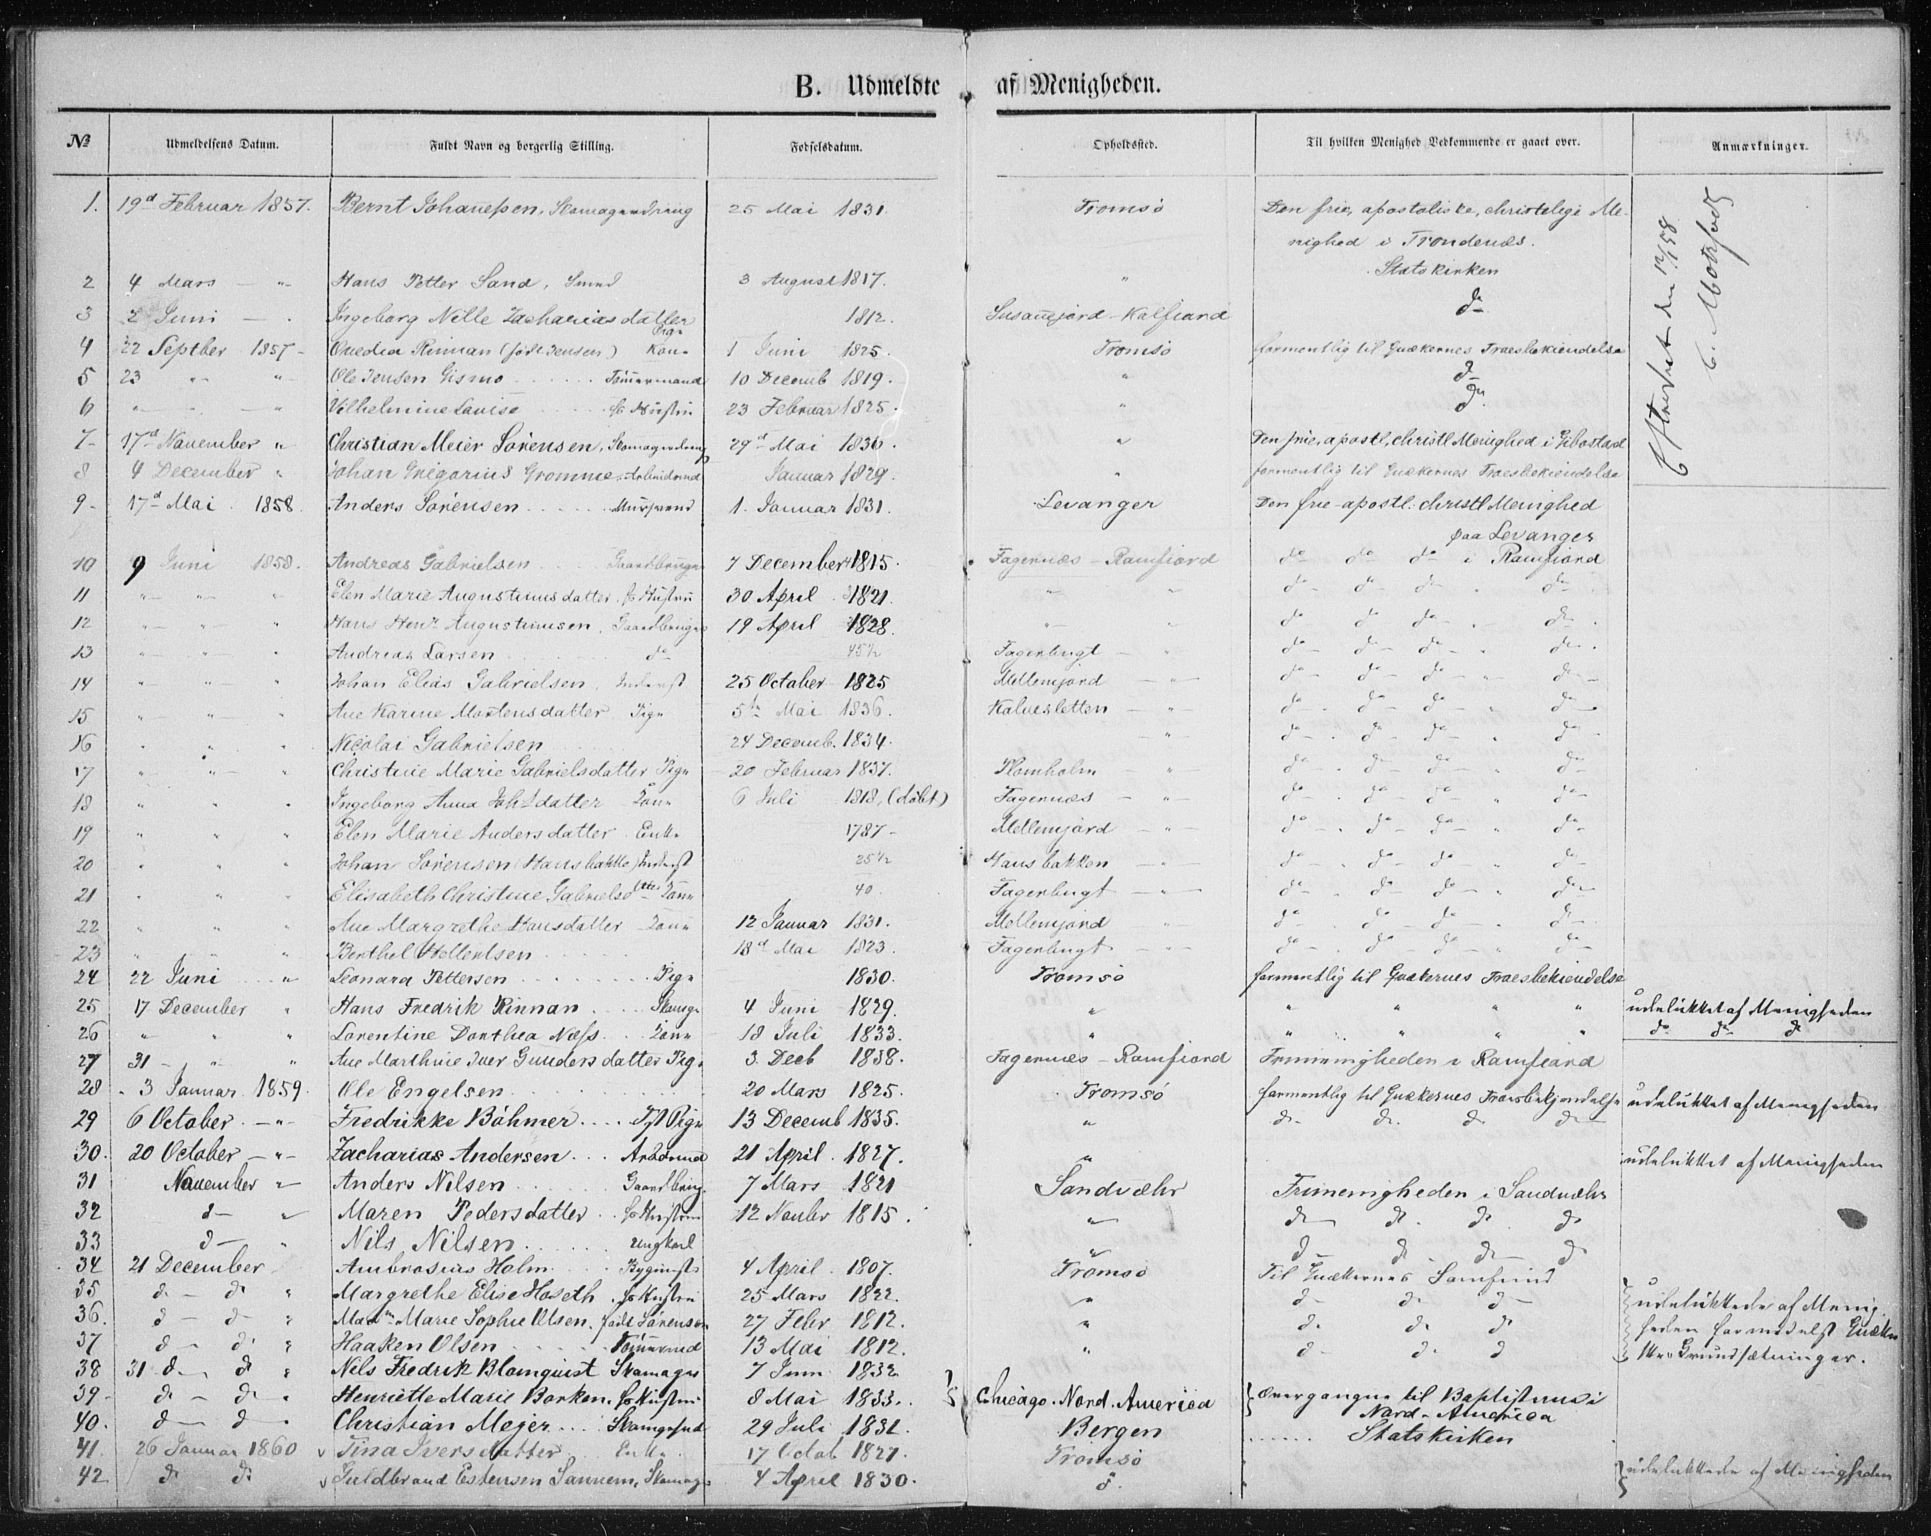 B. Udmeldte af Menigheden.
№ Udmeldelsens Datum. Fuldt Navn og borgerlig Stilling. Fødselsdatum. Opholdssted. Til hvilken Menighed Vedkommende er gaaet over. Anmærkninger.
1. 19d Februar 1857. Bernt Johanesen, Skomagerdreng 25 Mai 1831. Tromsö Den frie, apostoliske, christelige Me-
nighed i Trondenæs.
2 4 Mars — " Hans Petter Sand, Smed 3 August 1817. " Statskirken
3 2 Juni — . Ingeborg Nille Zachariasdatter Pige 1812. Susannejord - Kalfiord do
4 22 Septber 1857 - Ovedia Rinnan (födt Jensen) Kone 1 Juni 1825. Tromsö formentlig til Quækernes Troesbekiendelse
5 23 " " Ole Jensen Gismo Tömmermand 10 Decemb 1819. " do
6 " " " Vilhelmine Lovise Hustru 23 Februar 1825. " do
7- 17d November " Christian Meier Sörensen, Skomagerdreng 29d Mai 1836. " Den frie, apostl, christl Menighed i Gibostad
8 4 December " Johan Gregorius Gromme, Arbeidsmd Januar 1829. " formentlig til Quækernes Troesbekiendelse
9- 17d Mai 1858. Anders Sörensen Mursvend 1. Januar 1831. Levanger Den frie apostl: christl Menighed
paa Levanger
Efterseet den 12/1 58
10 9 Juni 1858. Andreas Gabrielsen Gaardbruger 7 December 1815. Fagernæs - Ramfiord do do do i Ramfiord
11 " " " Elen Marie Augustinusdatter, Hustru 30 April 1821. " " do do do " do
12 " " " Hans Henr Augustinusen, Gaardbruger 19 April 1828. " " do do do " do
13 " " " Andreas Larsen do 45½ Fagerbugt — " do do do " do
14 " " " Johan Elias Gabrielsen, Inderst 25 October 1825 Mellemjord — " do do do " do
15 " " " Ane Karine Mortensdatter Pige 5te Mai 1836. Kalvesletten — " do do do " do
16 " " " Nicolai Gabrielsen 24 Decemb. 1834. — " do do do " do
17 " " " Christine Marie Gabrielsdatter Pige 20 Februar 1837. Holmholm — " do do do " do
18 " " " Ingeborg Anna Johsdatter Kone 6 Juli 1818, (döbt) Fagernæs — " do do do " do
19 " " " Elen Marie Andersdatter Enke 1787 - Mellemjord — " do do do " do
20 " " " Johan Sörensen (Hansbakke) Inderst 25½ Hansbakken — " do do do " do
21 " " " Elisabeth Christine Gabrielsdtter Kone 40 Fagerbugt — " do do do " do
22 " " " Ane Margrethe Hansdatter Kone 12 Januar 1831. Mellemjord " do do do " do
23 " " " Berthel Hellentsen 18d Mai 1823. Fagerbugt — " do do do " do
24 22 Juni " Leonara Pettersen Pige 1830. Tromsö formentlig til Quækernes Troesbekiendelse
25 17 December " Hans Fredrik Rinnan Skomgr 4 Juni 1829. " " " " " udelukket af Menigheden
26 " " " Lorentine Dorthea Næss Kone 18 Juli 1833. " " " " " do do do
27 31 - " " Ane Marthine Iver Gundersdatter Pige 3. Decb 1838. Fagernæs - Ramfiord Frimenigheden i Ramfiord
28 3 Januar 1859. Ole Engelsen 20 Mars 1825. Tromsö formentlig til Quækernes Troesbekjendelse udelukket af Menigheden
29 6 October — " Fredrikke Böhmer Pige 13 Decemb 1835. " do do do do
30. 20 October — " Zacharias Andersen Arbmd 21 April 1827. " udelukket af Menigheden
31 November " Anders Nilsen Gaardbrug. 7 Mars 1821 Sandvæhr Frimenigheden i Sandvæhr
32 d— " Maren Pedersdatter Hustru 12 Novbr 1815. " do do do do
33 d— " Nils Nilsen Ungkarl " do do do do
34 21 December Ambrosius Holm 4 April 1807. Tromsö Til Quækernes Samfund
35 do - do " Margrethe Elise Hoseth Hustru 25 Mars 1822. " do do do udelukkede af Menig-
36. do - do " Marie Sophie Olsen födt Sörensen 27 Febr 1812. " do do do heden formedelst Quæker
37 do - do " Haaken Olsen Tömmermd 13 Mai 1812. " do do do Grundsætninger.
38 31 do do " Nels Fredrik Blomquist Skomager 7 Juni 1832
39- do - do " Henriette Marie Borken, Hustru 8 Mai 1833. Chicago. Nord. America overgangne til Baptisterne i
Nord-America
40. do - do Christian Mejer Skomgrsvd 29 Juli 1831. Bergen Statskirken
41. 26 Januar 1860 Tina Iversdatter Enke 17 Octob 1821. Tromsö
42. do do Guldbrand Estensen Sannem, Skomagr 4 April 1830. do. udelukkede af Menigheden